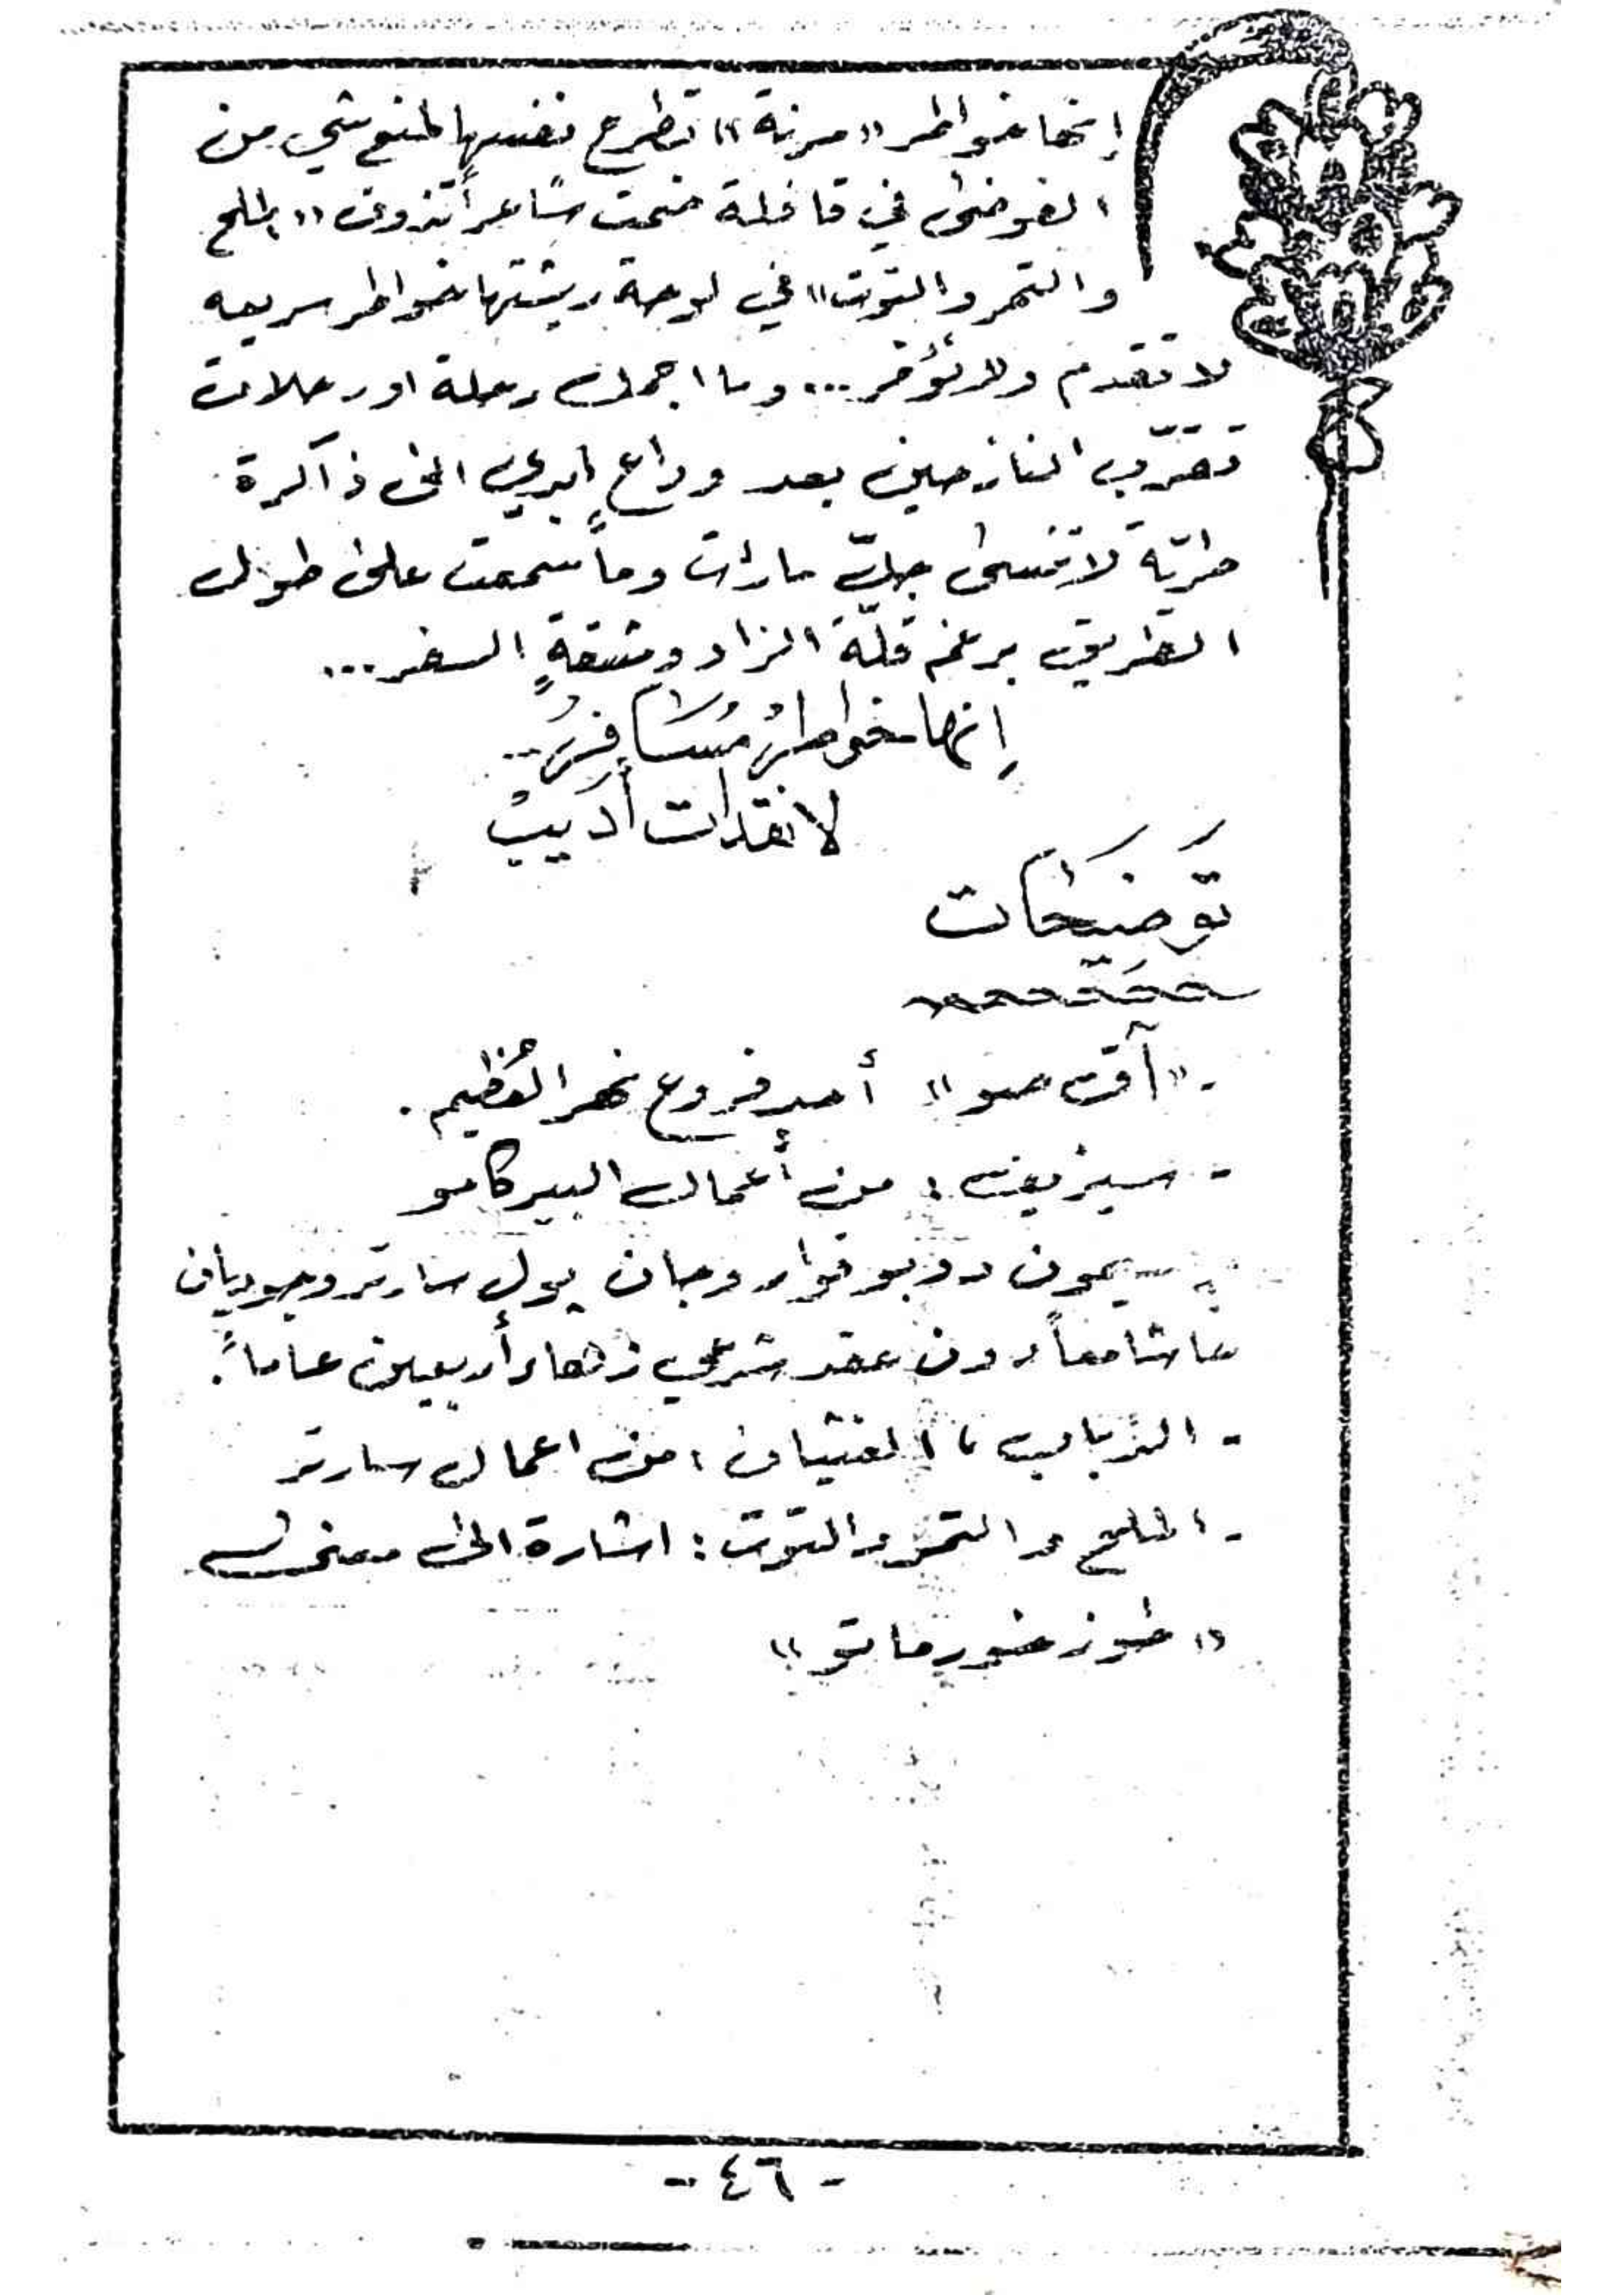 إنها خواطر «مرنة» تطرح نفسها لمنع شيء من
الفوضى في قافلة ضمت شاعراً تذوق «الملح
والتمر والتوت» في لوحة ريشتها خواطر سريعه
لا تقدم ولا تؤخر... وما اجمل رحلة او رحلات
تقرّب النازحين بعد وداعٍ ابدي الى ذاكرة
طريّة لا تنسى جلّ ما رأت وما سمعت على طول
الطريق برغم قلّة الزاد ومشقةِ السفر...
إنها خواطر مُسَافِرُ..
لا نقدات أديبْ
تَوضيَحَات
- «آق صو» أحد فروع نهر العُظيم.
- سيزيف: من أعمال البير كامو
- سيمون دو بوفوار وجان بول سارتر وجوديان
عاشا معاً دون عقد شرعي زهاء أربعين عاماً.
- الذباب، الغثيان: من اعمال سارتر
- الملح والتمر والتوت: اشارة الى معنى
«طوز خورماتو»
- ٤٦ -